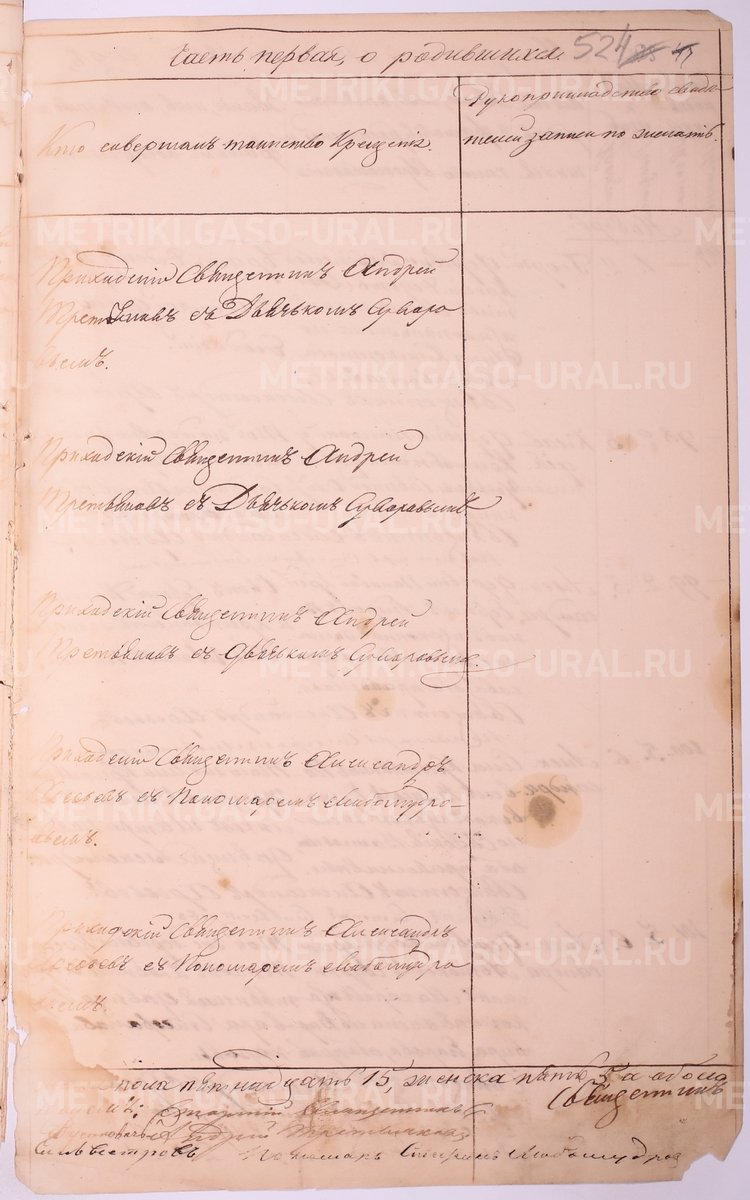 Часть первая, о родившихся.
524
Кто совершалъ таинство Крещенія.
Рукоприкладство свидѣ-
телей записи по желанію.
Приходскій Священникъ Андрей
Третьяковъ съ Дьячькомъ Суваро
вымъ.
Приходскій Священникъ Андрей
Третьяковъ съ Дьячькомъ Суваровымъ
Приходскій Священникъ Андрей
Третьяковъ съ Дьячькомъ Суваровымъ.
Приходскій Священникъ Александръ
съ Пономаремъ Любомудро-
вымъ.
Приходскій Священникъ Александръ
съ Пономаремъ Любомудро
вымъ.
пола пятнадцать 15, женска пять 5, а обоего
Священникъ
Священникъ
Андрей Третьяковъ
Пономарь Любомудровъ
METRIKI.GASO-URAL.RU